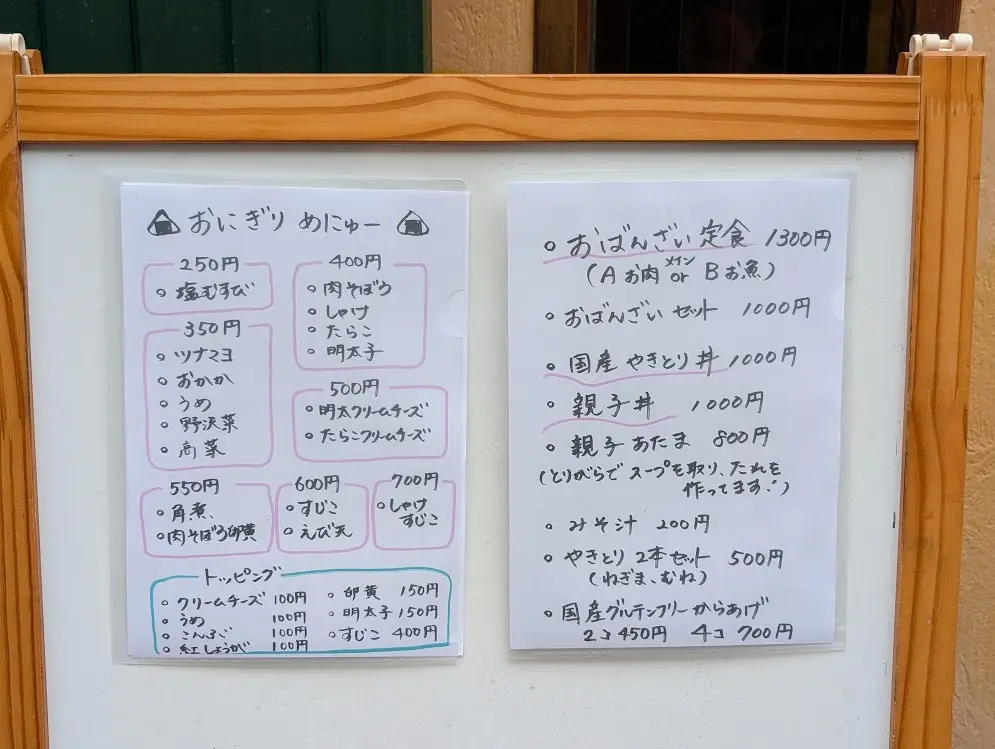 おにぎり めにゅー
250円
塩むすび
350円
ツナマヨ
おかか
うめ
野沢菜
高菜
400円
肉そぼろ
しゃけ
たらこ
明太子
500円
明太クリームチーズ
たらこクリームチーズ
550円
角煮
肉そぼろ卵黄
600円
すじこ
えび天
700円
しゃけ
すじこ
トッピング
クリームチーズ 100円
うめ 100円
こんぶ 100円
紅しょうが 100円
卵黄 150円
明太子 150円
すじこ 400円
おばんざい定食 1300円
メイン
(Aお肉 or Bお魚)
おばんざいセット 1000円
国産やきとり丼 1000円
親子丼 1000円
親子あたま 800円
(とりがらでスープを取り、たれを
作ってます!)
みそ汁 200円
やきとり2本セット 500円
(ねぎま、むね)
国産グルテンフリーからあげ
2コ 450円 4コ 700円